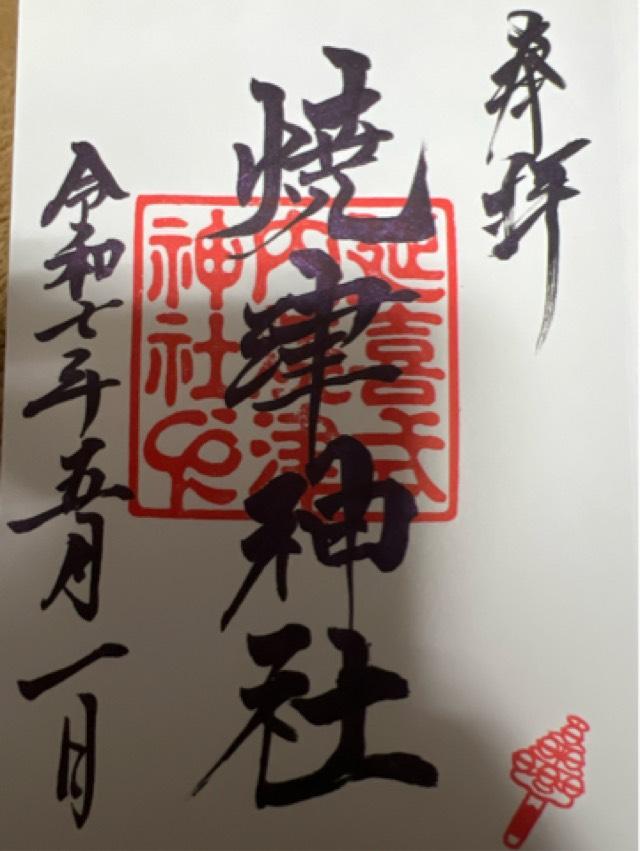 奉拝
焼津神社
延喜式
内津
神社印
令和七年五月一日